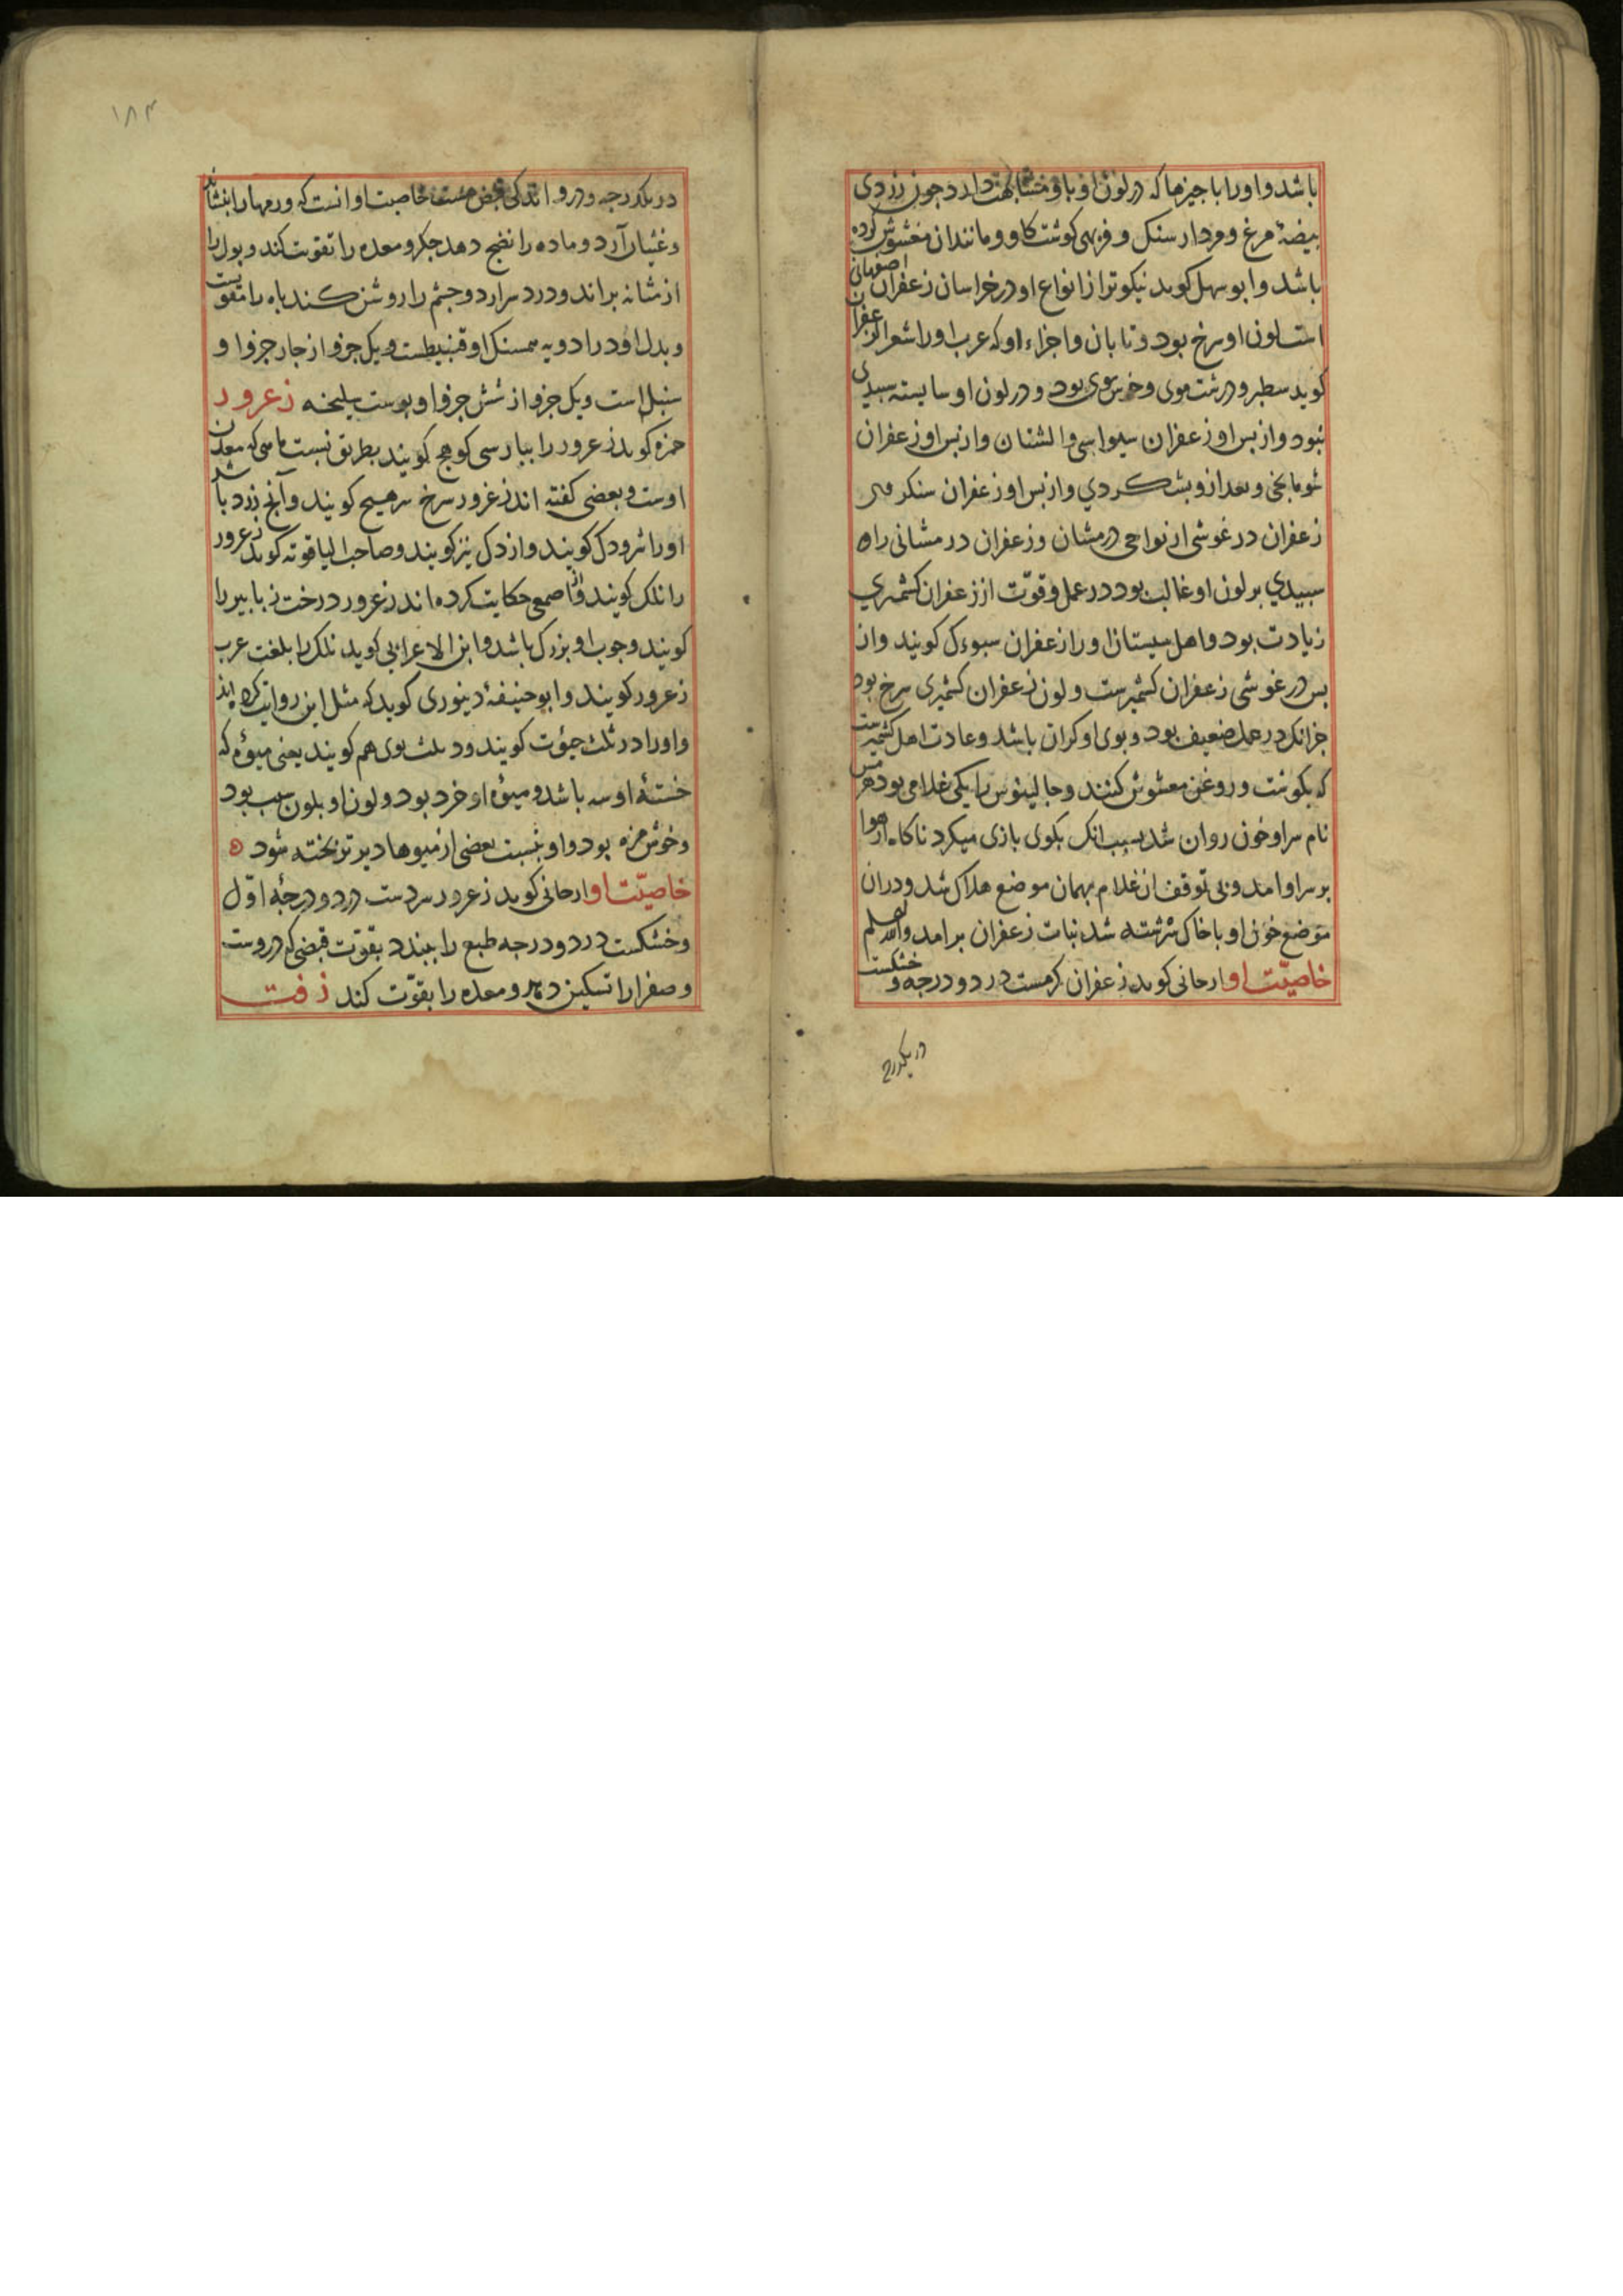 باشد و اورا با جیزها که در لون او با او مشابهت دارد جون زردی
بیضهٔ مرغ و مردار سنک و فربهی کوشت کاو و مانند ان مغشوش کرده
باشد و ابو سهل کوید نیکوتر از انواع او در خراسان زعفران اصفهانی
است لون او سرخ بود و تابان و اجزاء او که عرب اورا شعر الزعفران
کوید سطبر و درشت موی و بود و در لون او سبیدی
نبود و از بس او زعفران و از بس او زعفران
و بعد ازو و از بس او زعفران
زعفران در غوشی از نواحی درمشان و زعفران در مشانی راه
سبیدي بر لون او غالب بود در عمل و قوّت از زعفران کشمیري
زیادت بود و اهل سیستان اورا زعفران کویند و از
بس در غوشی زعفران کشمیرست و لون زعفران کشمیری سرخ بود
جزانک در عمل ضعیف بود و بوی او کران باشد و عادت اهل کشمیرست
که بکوشت و روغن مغشوش کنند و جالینوس را یکی غلامی بود
نام سر او خون روان شد بسبب انک بکوی بازی میکرد ناکاه از هوا
بر سر او امد و بی توقف ان غلام بهمان موضع هلاک شد و در ان
موضع خون او با خاک سرشته شد نبات زعفران بر امد والله اعلم
خاصیّت او ارحانی کوید زعفران کرمست در دو درجه و خشکست
در یکدرج
۱۸۳
در یکدرجه و درو اندکی قبض هست خاصیت او انست که ورمها را بنشاند
و غثیان آرد و ماده را نضج دهد جکر و معده را تقویت کند و بول را
از مثانه براند و درد سر ارد و جشم را روشن کند باه را تقویت
و بدل او در ادویه همسنک او و یک جزو از جار جزو او
سنبل است و یک جزو از شش جزو او بوست سلیخه زعرور
حمزه کوید زعرور را ببارسی کوهج کویند بطریق نسبت که معدن
اوست و بعضی کفته اند زعرور سرخ کویند و آنج زرد باشد
اورا کویند و ازدک نیز کویند و صاحب الیاقوته کوید زعرور
را نلک کویند و از اصمعی حکایت کرده اند زعرور درخت را
کویند و جوب او بزرک باشد و ابن الاعرابی کوید نلک را بلغت عرب
زعرور کویند و ابو حنیفهٔ دینوری کوید که مثل این روایت کرده اند
و اورا در ثلث کویند و هم کویند یعنی میوهٔ که
خستهٔ او سه باشد و میوهٔ او خرد بود و لون او بلون سیب بود
و خوش مزه بود و او بنسبت بعضی از میوها دیرتر بخته شود
خاصیّت او ارحانی کوید زعرور سردست در دو درجهٔ اوّل
و خشکست در دو درجه طبع را ببندد بقوّت قبضی که دروست
و صفرا را تسکین دهد و معده را بقوّت کند زفت